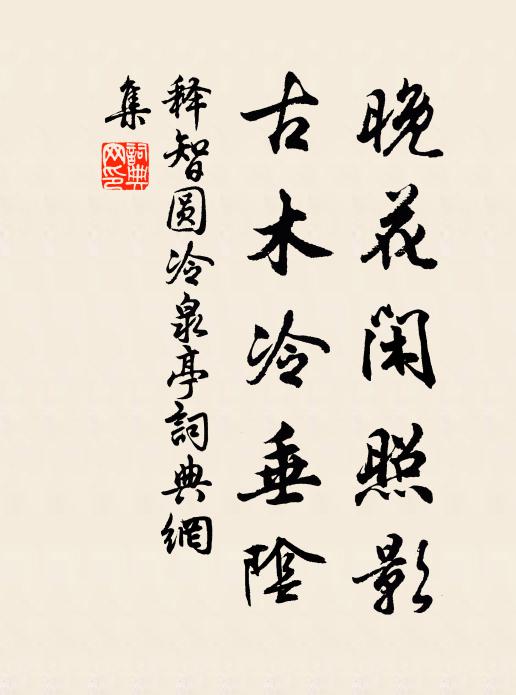 晚花闲照影
古木冷垂陰
释智圆冷泉亭詞典網
集
詞典
网印